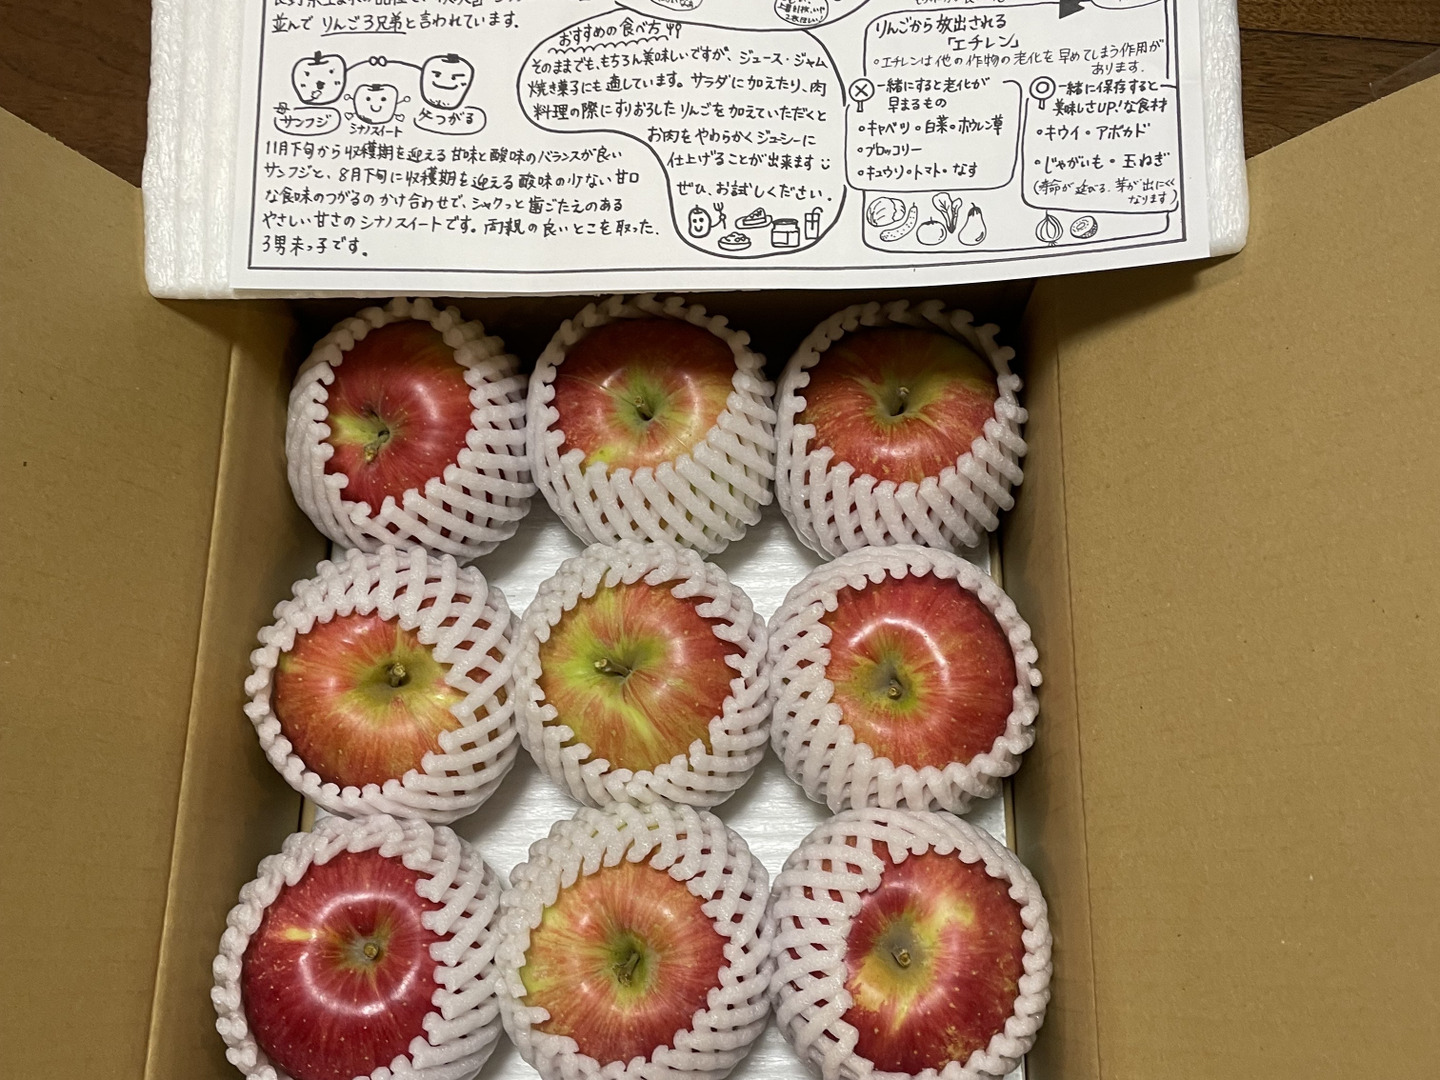 並んで りんご3兄弟と言われています。
母
サンフジ
シナノスイート
父つがる
11月下旬から収穫期を迎える甘味と酸味のバランスが良い
サンフジと、8月下旬に収穫期を迎える酸味の少ない甘口
な食味のつがるのかけ合わせで、シャクっと歯ごたえのある
やさしい甘さのシナノスイートです。両親の良いとこを取った、
3男末っ子です。
おすすめの食べ方
そのままでも、もちろん美味しいですが、ジュース・ジャム
焼き菓子にも適しています。サラダに加えたり、肉
料理の際にすりおろしたりんごを加えていただくと
お肉をやわらかくジューシーに
仕上げることが出来ます
ぜひ、お試しください。
りんごから放出される
「エチレン」
・エチレンは他の作物の老化を早めてしまう作用が
あります.
一緒にすると老化が
早まるもの
・キャベツ・白菜・ホウレン草
・ブロッコリー
・キュウリ・トマト・なす
一緒に保存すると
美味しさUP!な食材
・キウイ・アボカド
・じゃがいも・玉ねぎ
(寿命が延びる.芽が出にくく
なります)